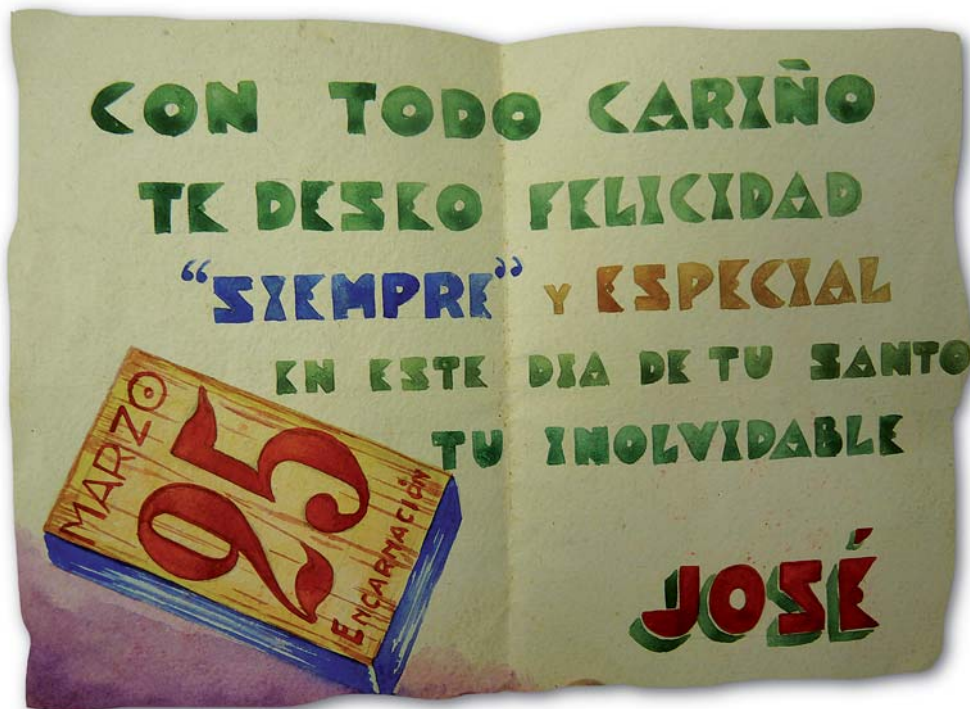 CON TODO CARIÑO
TE DESEO FELICIDAD
“SIEMPRE” Y ESPECIAL
EN ESTE DIA DE TU SANTO
TU INOLVIDABLE
JOSÉ
MARZO
25
ENCARNACIÓN